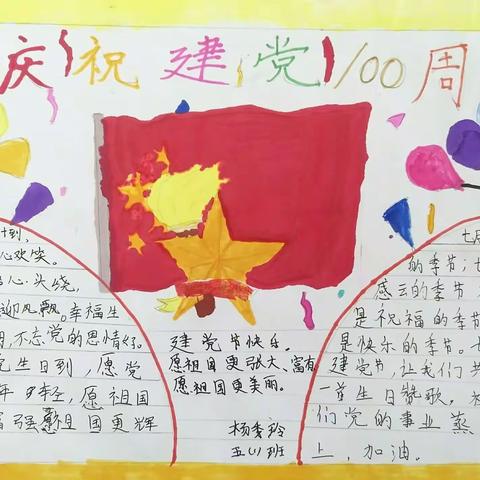 庆祝建党100周
计到,
心欢笑。
心头绕,
迎风飘。幸福生
不忘党的恩情好。
生日到,愿党
年轻,愿祖国
富强 祖国更辉
建党节快乐。
愿祖国更强大、富有
愿祖国更美丽。
杨秀玲
五(1)班
七月
的季节;七
感云的季节
是祝福的季节
是快乐的季节。七
建党节,让我们共
一首生日赞歌,祝
们党的事业蒸
上,加油。